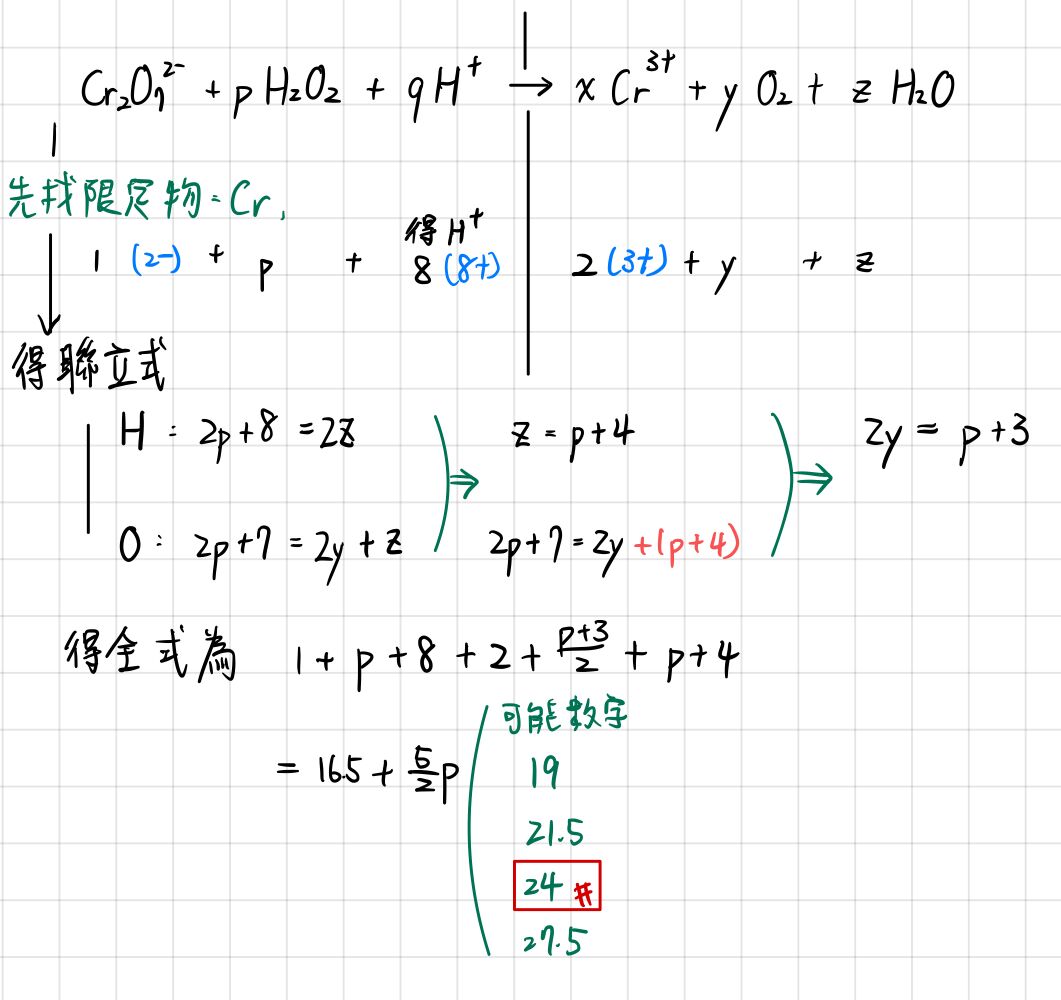 Cr₂O₇²⁻ + p H₂O₂ + q H⁺ → x Cr³⁺ + y O₂ + z H₂O
先找限定物:Cr,
得 H⁺
1 (2-) + p + 8 (8+) 2 (3+) + y + z
得聯立式
H : 2p+8 = 2z z = p+4 2y = p+3
⇒ ⇒
O : 2p+7 = 2y + z 2p+7 = 2y +(p+4)
得全式為 1 + p + 8 + 2 + (p+3)/2 + p+4
可能數字
= 16.5 + 5/2 p 19
21.5
24 #
27.5